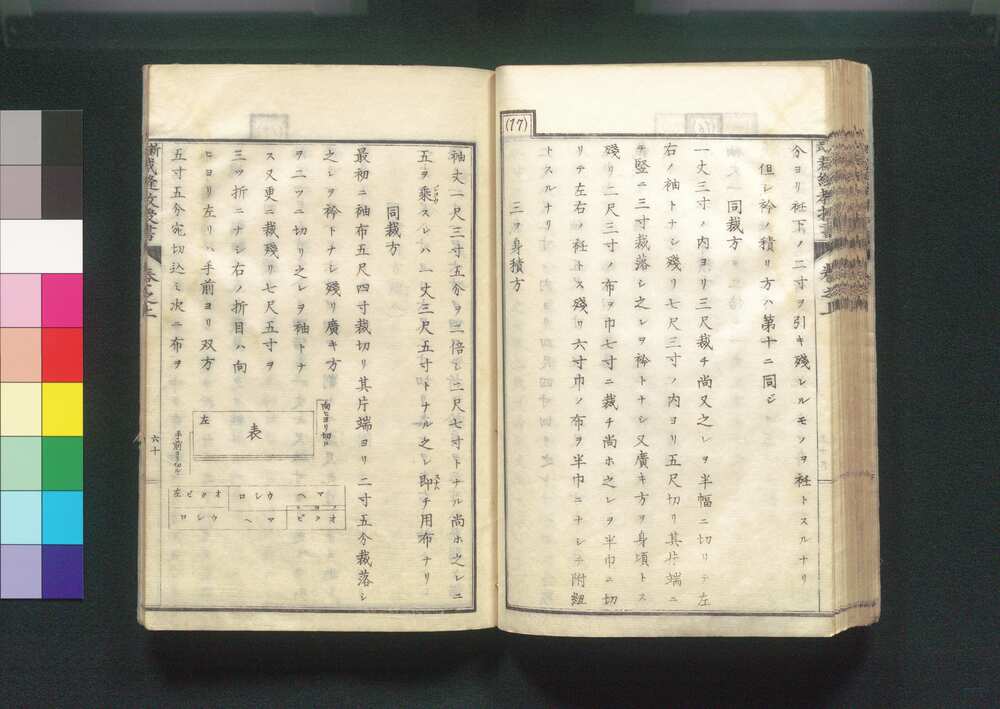 (17)
分ヨリ衽下ノ二寸ヲ引キ殘シルモノヲ衽トスルナリ
但シ衿ノ積リ方ハ第十二同ジ
同裁方
一丈三寸ノ内ヨリ三尺裁チ尚又之レヲ半幅ニ切リテ左
右ノ袖トナシ殘リ七尺三寸ノ内ヨリ五尺切リ其片端ニ
テ堅ニ三寸裁落シ之レヲ衿トナシ又廣キ方ヲ身頃トス
殘リ二尺三寸ノ布ヲ巾七寸ニ裁チ尚ホ之レヲ半巾ニ切
リテ左右ノ衽トス殘リ六寸巾ノ布ヲ半巾ニナシテ附紐
トスルナリ
三ツ身積方
袖丈一尺三寸五分ヲ二倍シ二尺七寸トナル尚ホ之レニ
五ヲ乘スレハ一丈三尺五寸トナル之レ即チ用布ナリ
同裁方
最初ニ袖布五尺四寸裁切リ其片端ヨリ二寸五分裁落シ
之レヲ衿トナシ殘リ廣キ方
ヲ二ツニ切リ之レヲ袖トナ
ス又更ニ裁殘リ七尺五寸ヲ
三ツ折ニナシ右ノ折目ハ向
ヒヨリ左リハ手前ヨリ双方
五寸五分宛切込ミ次ニ布ヲ
向ヒヨリ切ル
表
左
手前ヨリ切ル
マヘ
ウシロ
オクビ左
オクビ
マヘ
ウシロ
裁縫教授書
卷之上
六十